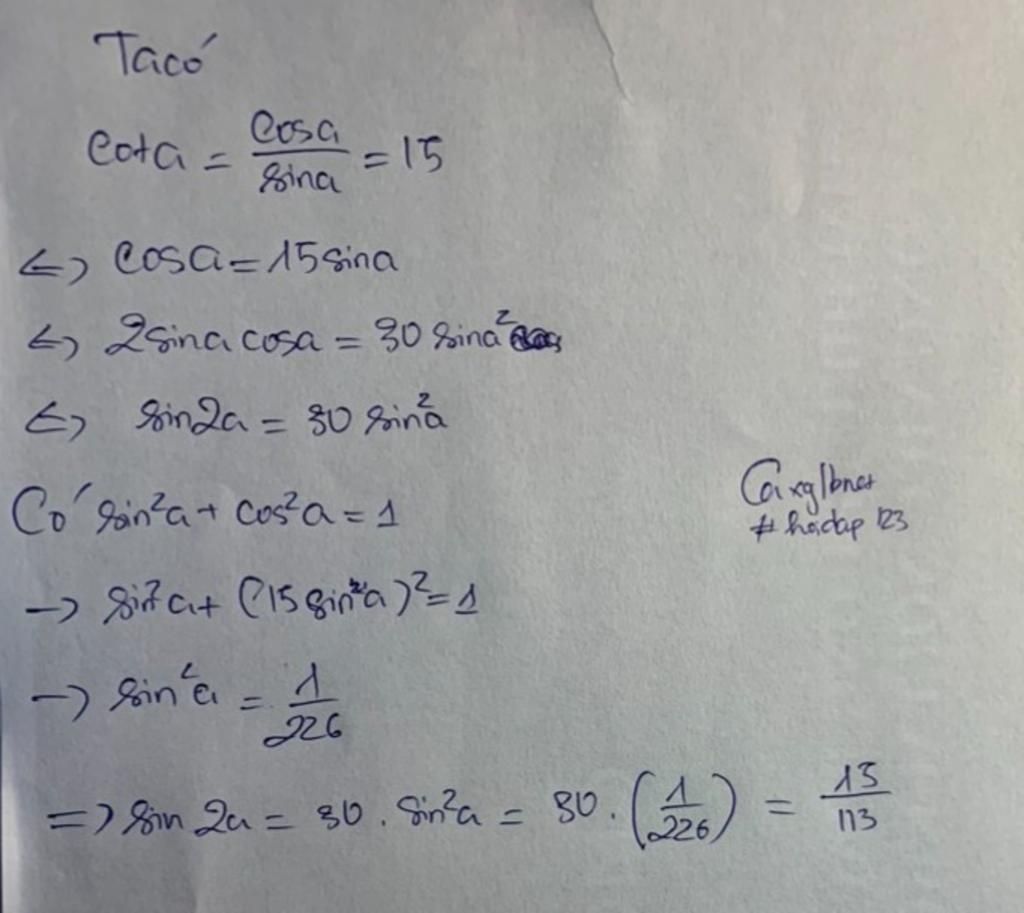 Ta có
cota = cosa/sina = 15
<=> cosa = 15sina
<=> 2sina cosa = 30 sina²
<=> sin2a = 30 sin²a
Có sin²a + cos²a = 1
-> sin²a + (15 sin²a)² = 1
-> sin²a = 1/226
=> sin 2a = 30 . sin²a = 30 . (1/226) = 15/113
# hoidap 123